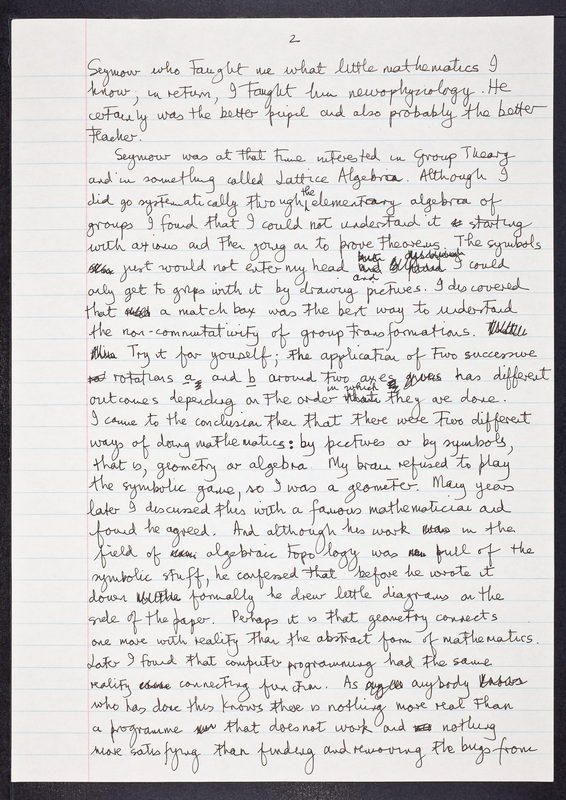 2
Seymour who taught me what little mathematics I
know; in return, I taught him neurophysiology. He
certainly was the better pupil and also probably the better
teacher.
Seymour was at that time interested in Group Theory
and in something called Lattice Algebra. Although I
did go systematically through the elementary algebra of
groups I found that I could not understand it starting
with axioms and then going on to prove theorems. The symbols
just would not enter my head and I could
only get to grips with it by drawing pictures. I discovered
that a match box was the best way to understand
the non-commutativity of group transformations.
Try it for yourself; the application of two successive
rotations a and b around two axes has different
outcomes depending on the order in which they are done.
I came to the conclusion then that there were two different
ways of doing mathematics: by pictures or by symbols,
that is, geometry or algebra. My brain refused to play
the symbolic game, so I was a geometer. Many years
later I discussed this with a famous mathematician and
found he agreed. And although his work in the
field of algebraic topology was full of the
symbolic stuff, he confessed that before he wrote it
down formally he drew little diagrams on the
side of the paper. Perhaps it is that geometry connects
one more with reality than the abstract form of mathematics.
Later I found that computer programming had the same
reality connecting function. As anybody
who has done this knows there is nothing more real than
a programme that does not work and nothing
more satisfying than finding and removing the bugs from